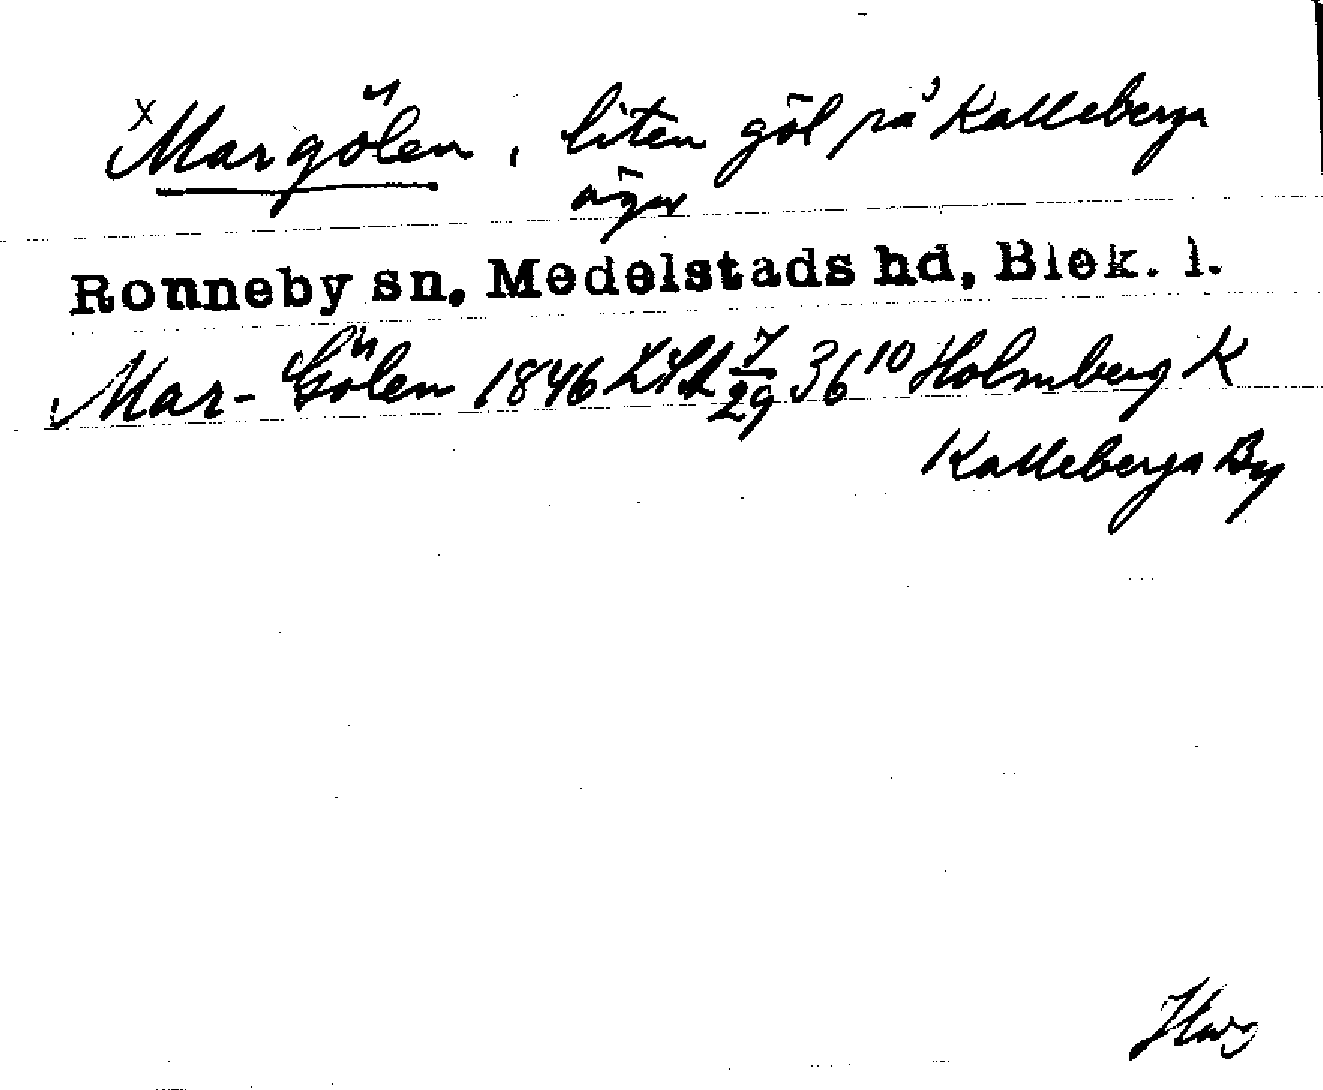 x Margölen, liten göl på Kalleberga
ägor
Ronneby sn, Medelstads hd, Blek. l.
Mar-Gölen 1846 LSA 7/29 36¹⁰ Holmberg K
Kalleberga By